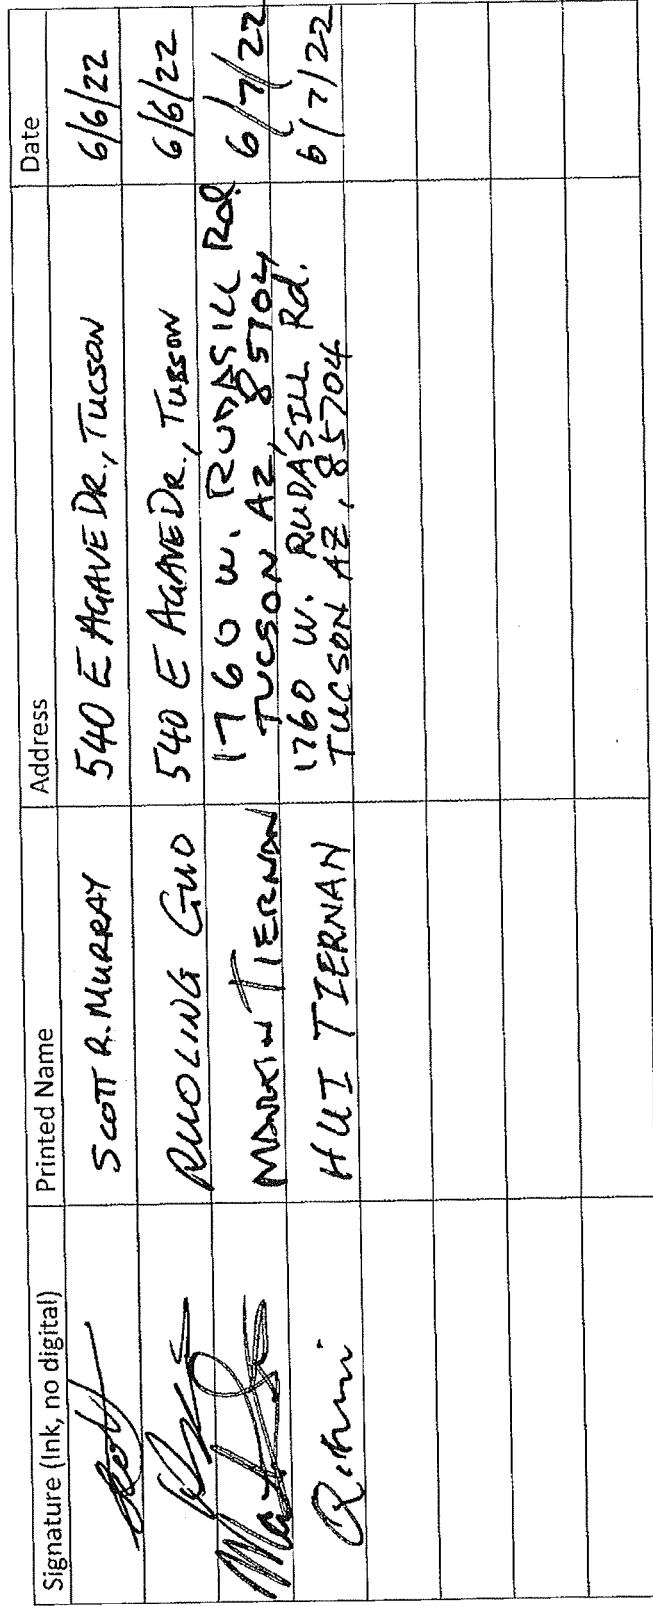 Signature (Ink, no digital) Printed Name Address Date
SCOTT R. MURRAY 540 E AGAVE DR., TUCSON 6/6/22
RUOLING GUO 540 E AGAVE DR., TUSSON 6/6/22
MARTIN TIERNAN 1760 W. RUDASILL Rd. 6/7/22
TUCSON AZ, 85704
HUI TIERNAN 1760 W. RUDASILL Rd. 6/7/22
TUCSON AZ, 85704